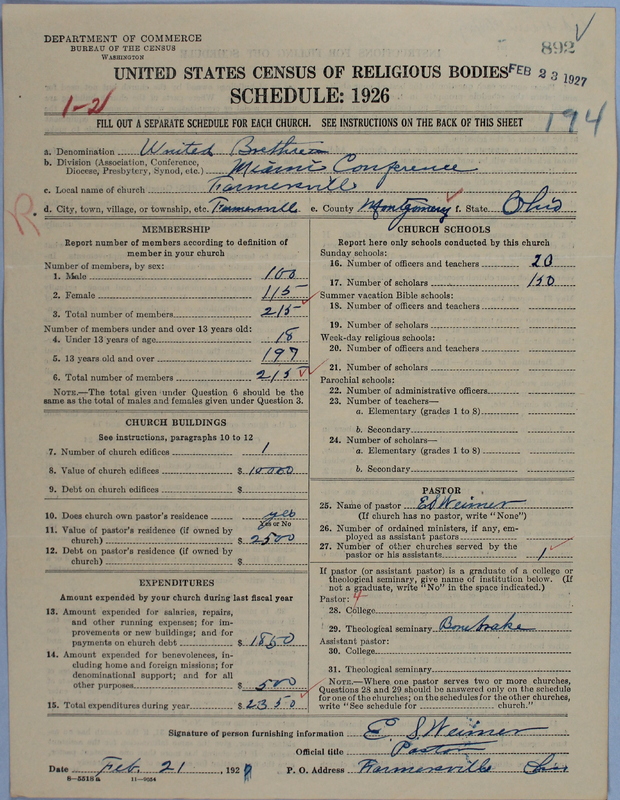 DEPARTMENT OF COMMERCE
BUREAU OF THE CENSUS
WASHINGTON
892
FEB 23 1927
UNITED STATES CENSUS OF RELIGIOUS BODIES
SCHEDULE: 1926
1-2
194
FILL OUT A SEPARATE SCHEDULE FOR EACH CHURCH. SEE INSTRUCTIONS ON THE BACK OF THIS SHEET
a. Denomination United Brethren
b. Division (Association, Conference, Diocese, Presbytery, Synod, etc.) Miami Conference
c. Local name of church Farmersville
d. City, town, village, or township, etc. Farmersville e. County Montgomery f. State Ohio
R.
MEMBERSHIP
Report number of members according to definition of
member in your church
Number of members, by sex:
1. Male 100
2. Female 115
3. Total number of members 215
Number of members under and over 13 years old:
4. Under 13 years of age 18
5. 13 years old and over 197
6. Total number of members 215
NOTE.—The total given under Question 6 should be
same as the total of males and females given under Question 3.
CHURCH BUILDINGS
See instructions, paragraphs 10 to 12
7. Number of church edifices 1
8. Value of church edifices $ 10000
9. Debt on church edifices $
10. Does church own pastor's residence yes
Yes or No
11. Value of pastor's residence (if owned by
church) $ 2500
12. Debt on pastor's residence (if owned by
church) $
EXPENDITURES
Amount expended by your church during last fiscal year
13. Amount expended for salaries, repairs,
and other running expenses; for im-
provements or new buildings; and for
payments on church debt $ 1850
14. Amount expended for benevolences, in-
cluding home and foreign missions; for
denominational support; and for all
other purposes $ 500
15. Total expenditures during year $ 2350
CHURCH SCHOOLS
Report here only schools conducted by this church
Sunday schools:
16. Number of officers and teachers 20
17. Number of scholars 150
Summer vacation Bible schools:
18. Number of officers and teachers
19. Number of scholars
Week-day religious schools:
20. Number of officers and teachers
21. Number of scholars
Parochial schools:
22. Number of administrative officers
23. Number of teachers—
a. Elementary (grades 1 to 8)
b. Secondary
24. Number of scholars—
a. Elementary (grades 1 to 8)
b. Secondary
PASTOR
25. Name of pastor E S Weimer
(If church has no pastor, write "None")
26. Number of ordained ministers, if any, em-
ployed as assistant pastors
27. Number of other churches served by the
pastor or his assistants 1
If pastor (or assistant pastor) is a graduate of a college or
theological seminary, give name of institution below. (If
not a graduate, write "No" in the space indicated.)
Pastor: 4
28. College
29. Theological seminary Bonebrake
Assistant pastor:
30. College
31. Theological seminary
NOTE.—Where one pastor serves two or more churches,
Questions 28 and 29 should be answered only on the schedule
for one of the churches; on the schedules for the other churches,
write "See schedule for church."
Signature of person furnishing information E. S. Weimer
Official title Pastor
Date Feb. 21, 1927 P. O. Address Farmersville Ohio
8-5518a 11-9054